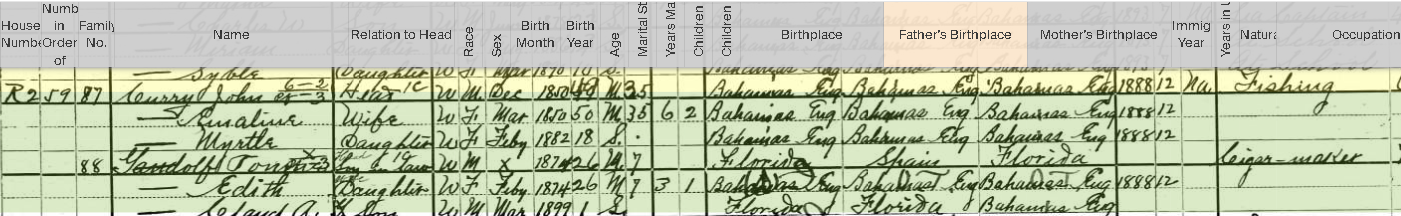 House Numb Family Name Relation to Head Race Sex Birth Birth Age Marital St Years Ma Children Children Birthplace Father's Birthplace Mother's Birthplace Immig Years in U Natura Occupation
Numbe in Order No. Month Year Year
of
— Syble Daughter W F Mar 1890 10 S. Bahamas Eng Bahamas Eng Bahamas Eng
R2 59 87 Curry John 6=2 Head W M Dec 1850 49 M 25 Bahamas Eng Bahamas Eng Bahamas Eng 1888 12 Na Fishing
— Emaline Wife W F Mar 1850 50 M 35 6 2 Bahamas Eng Bahamas Eng Bahamas Eng 1888 12
— Myrtle Daughter W F Feby 1882 18 S. Bahamas Eng Bahamas Eng Bahamas Eng 1888 12
88 Gandolf Tom Son in law W M x 1874 26 M 7 Florida Spain Florida Cigar-maker
— Edith Daughter W F Feby 1874 26 M 7 3 1 Bahamas Eng Bahamas Eng Bahamas Eng 1888 12
— Leland A. Son W M Mar 1899 1 S. Florida Florida Bahamas Eng